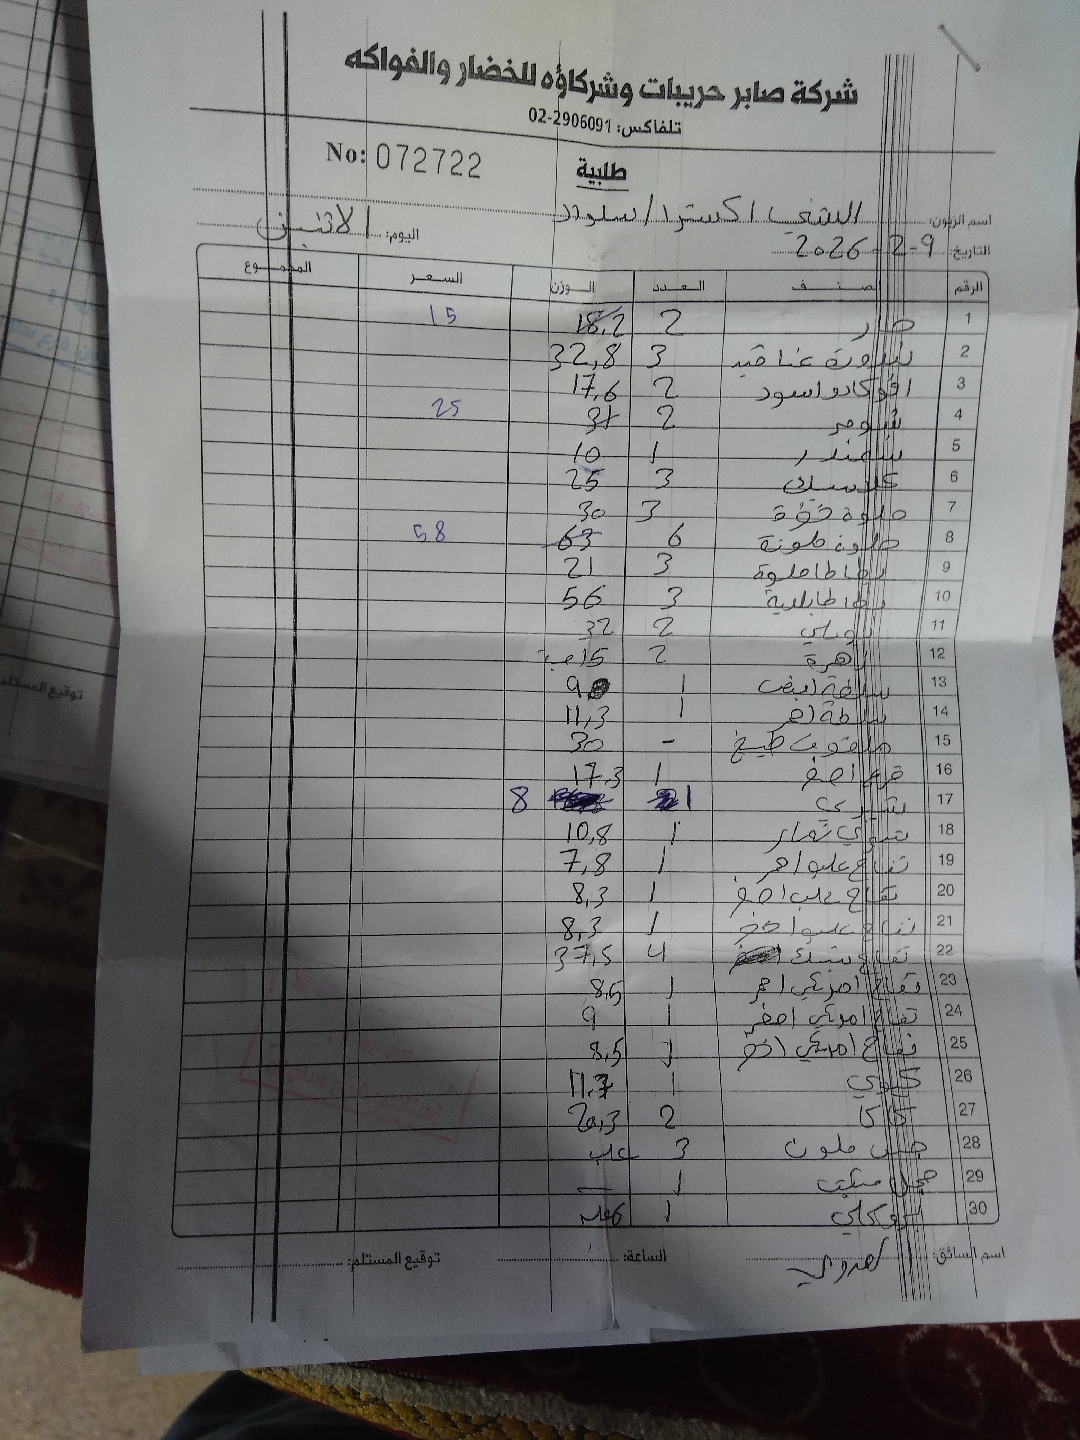 شركة صابر حريبات وشركاؤه للخضار والفواكه
تلفاكس: 02-2906091
No: 072722
طلبية
اسم الزبون: الشني اكسترا / سلواد
اليوم: الاثنين
التاريخ: 2026-2-9
الرقم الصنف العدد الوزن السعر المجموع
1 2 18,2 15
2 بندورة عناقيد 3 32,8
3 افوكادو اسود 2 17,6
4 شومر 2 31 25
5 شمندر 1 10
6 كلاسيك 3 25
7 حلوة 3 30
8 حلوة ملونة 6 63 58
9 بطاطا حلوة 3 21
10 بطاطا بلدية 3 56
11 2 32
12 زهرة 2 15 حبة
13 سلطة ابيض 1 9
14 سلطة احمر 1 11,3
15 ملفوف طبيخ - 30
16 قرع اصفر 1 17,3
17 1 8
18 شيري تمار 1 10,8
19 تفاح علب احمر 1 7,8
20 تفاح علب اصفر 1 8,3
21 تفاح علب اخضر 1 8,3
22 تفاح 4 37,5
23 تفاح امريكي احمر 1 8,5
24 تفاح امريكي اصفر 1 9
25 تفاح امريكي اخضر 1 8,5
26 كيوي 1 11,7
27 كاكا 2 20,3
28 ملون 3 علب
29 فجل 1 —
30 بروكلي 1 6 علب
اسم السائق:
الساعة:
توقيع المستلم:
توقيع المستلم